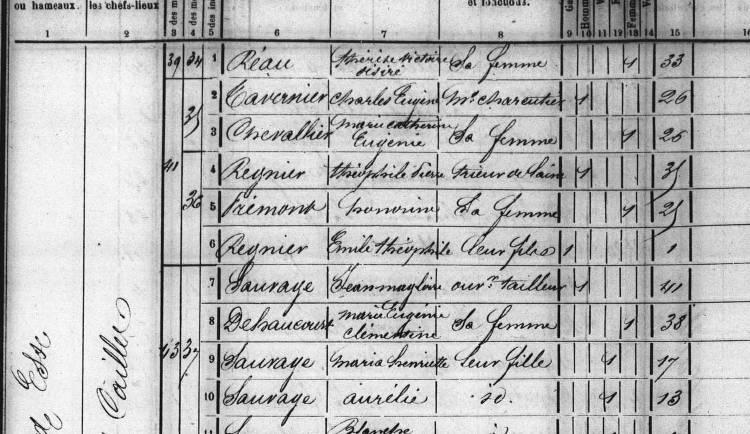 ou hameaux. les chefs-lieux et fonctions.
1 2 3 4 5 6 7 8 9 10 11 12 13 14 15 16
39 34 1 Réau thérèse victoire désiré Sa femme 1 33
2 Tavernier Charles Eugène Md charcutier 1 26
35 3 Chevallier marie catherine Eugénie Sa femme 1 25
41 4 Regnier théophile trieur de laine 1 35
36 5 Frémont honorine Sa femme 1 25
6 Regnier Emile théophile leur fils 1 1
7 Sauvage Jean magloire ouvr. tailleur 1 41
8 Dehaucourt marie Eugénie Clémentine Sa femme 1 38
43 37 9 Sauvage maria henriette leur fille 1 17
10 Sauvage aurélie id. 1 13
11 Blanche
de